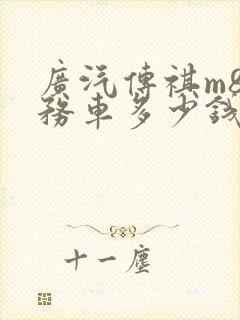 廣汽傳祺m8
務車多少錢
十一塵